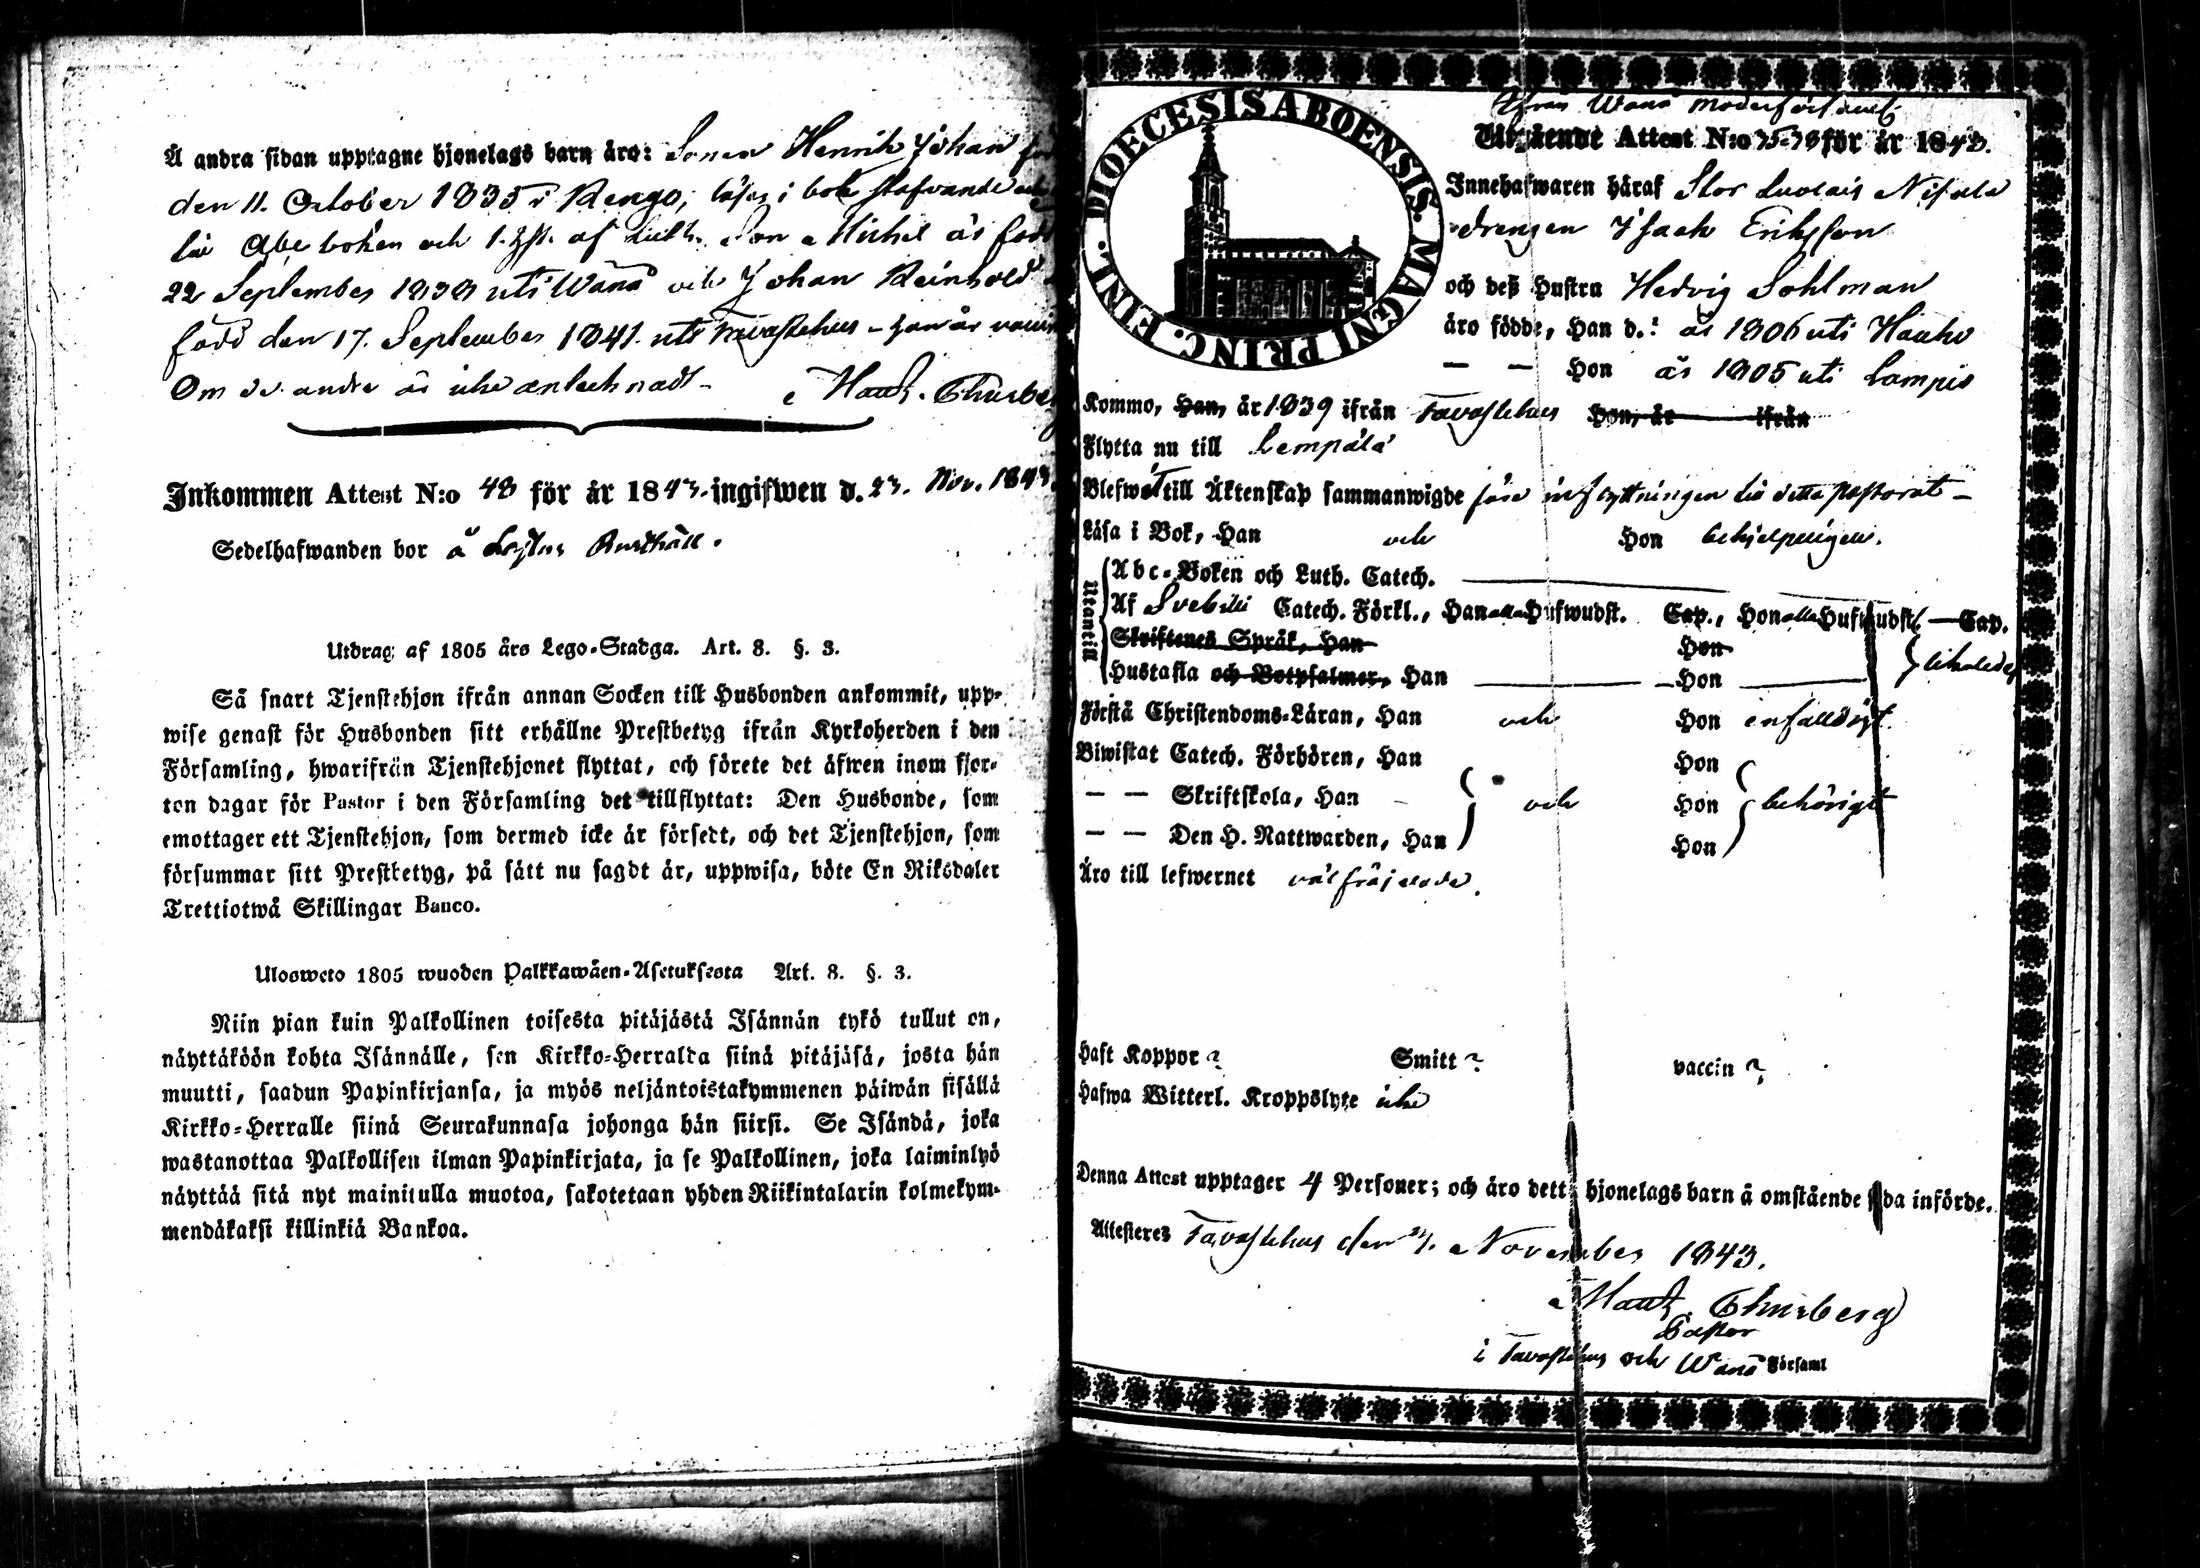 Å andra sidan upptagne hjonelags barn äro: Sonen Henrik Johan
den 11. October 1835 i Rengo, läser i bok stafvande
Abc boken och 1. Hst. af Luth. Son Michel är född
22 September 1838 uti Wånå och Johan Reinhold
född den 17. September 1841. uti Tavastehus – han är
Om de andra är icke antecknadt – Maur. Thurberg
Inkommen Attest N:o 48 för år 1843. ingifwen d. 23. Nov. 1843.
Sedelhafwanden bor å
Utdrag af 1805 års Lego-Stadga. Art. 8. §. 3.
Så snart Tjenstehjon ifrån annan Socken till Husbonden ankommit, upp-
wise genast för Husbonden sitt erhållne Prestbetyg ifrån Kyrkoherden i den
Församling, hwarifrån Tjenstehjonet flyttat, och förete det äfwen inom fjor-
ton dagar för Pastor i den Församling det tillflyttat: Den Husbonde, som
emottager ett Tjenstehjon, som dermed icke är försedt, och det Tjenstehjon, som
försummar sitt Prestbetyg, på sätt nu sagdt är, uppwisa, böte En Riksdaler
Trettiotwå Skillingar Banco.
Ulosweto 1805 wuoden Palkkawäen-Asetuksesta Art. 8. §. 3.
Niin pian kuin Palkollinen toisesta pitäjästä Isännän tykö tullut on,
näyttäköön kohta Isännälle, sen Kirkko-Herralta siinä pitäjäsä, josta hän
muutti, saadun Papinkirjansa, ja myös neljäntoistakymmenen päiwän sisällä
Kirkko-Herralle siinä Seurakunnasa johonga hän siirsi. Se Isändä, joka
wastanottaa Palkollisen ilman Papinkirjata, ja se Palkollinen, joka laiminlyö
näyttää sitä nyt mainitulla muotoa, sakotetaan yhden Riikintalarin kolmekym-
mendäkaksi killinkiä Bankoa.
DIOECESIS ABOENSIS. MAGNI PRINC. FINL.
ifrån Wånå moderförsaml
Utgående Attest N:o 75-78 för år 1843.
Innehafwaren häraf Stor Luolais Nisula
drengen Isach Eriksson
och deß Hustru Hedvig Sohlman
äro födde, Han d.: år 1806 uti Hauho
— — Hon år 1805 uti Lampis
Kommo, Han, år 1839 ifrån Tavastehus Hon, år ifrån
Flytta nu till Lempälä
Blefwo till Äktenskap sammanwigde före inflyttningen till detta pastorat –
Läsa i Bok, Han och Hon behjelpeligen.
Utantill
Abc-Boken och Luth. Catech.
Af Svebilii Catech. Förkl., Han alla Hufwudst. Cap., Hon alla Hufwudst. — Cap.
Skriftenes Språk, Han Hon
Hustafla och Botpsalmer, Han Hon likaledes
Förstå Christendoms-Läran, Han och Hon enfaldigt.
Biwistat Catech. Förhören, Han Hon
— — Skriftskola, Han och Hon behörigt
— — Den H. Nattwarden, Han Hon
Äro till lefwernet välfräjdade.
Haft Koppor ? Smitt ? vaccin ?
Hafwa Witterl. Kroppslyte icke
Denna Attest upptager 4 Personer; och äro dett hjonelags barn å omstående sida införde.
Attesteres Tavastehus den 21. November 1843.
Maur. Thurberg
Pastor
i Tavastehus och Wånå Församl